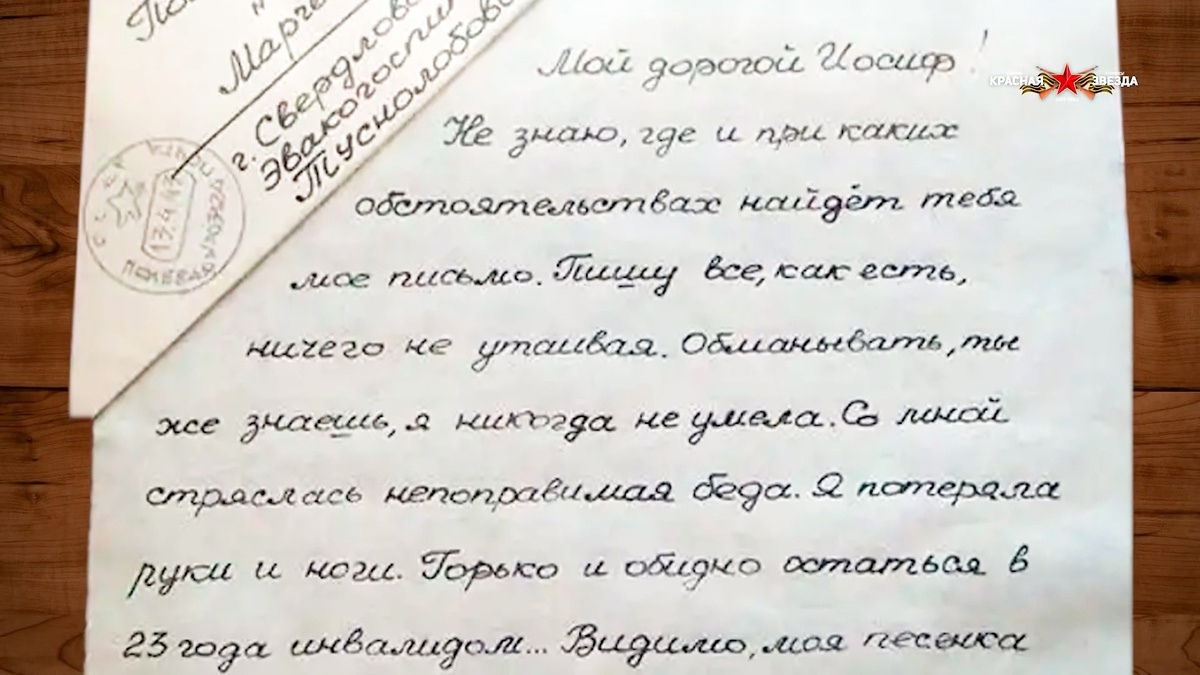 г. Свердлов
Эвакогоспит
Туснолобово
СССР
13.4.43
ПОЛЕВАЯ
Мой дорогой Иосиф!
Не знаю, где и при каких
обстоятельствах найдёт тебя
мое письмо. Пишу все, как есть,
ничего не утаивая. Обманывать, ты
же знаешь, я никогда не умела. Со мной
стряслась непоправимая беда. Я потеряла
руки и ноги. Горько и обидно остаться в
23 года инвалидом... Видимо, моя песенка
КРАСНАЯ ЗВЕЗДА